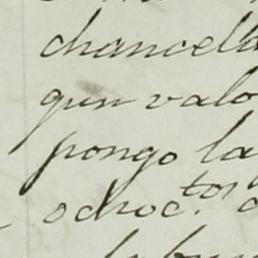 chancella
gun valo
pongo la
ochoc.tos